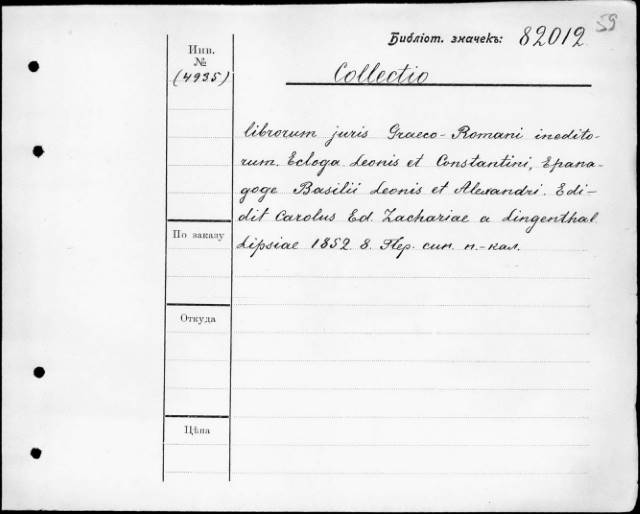 59
Библіот. значекъ: 82012
Инв.
№
(4935)
Collectio
librorum juris Graeco-Romani inedito-
rum. Ecloga Leonis et Constantini, Epana-
goge Basilii Leonis et Alexandri. Edi-
dit Carolus Ed. Zachariae a Lingenthal
Lipsiae 1852. 8. Пер. син. п.-кал.
По заказу
Откуда
Цѣна